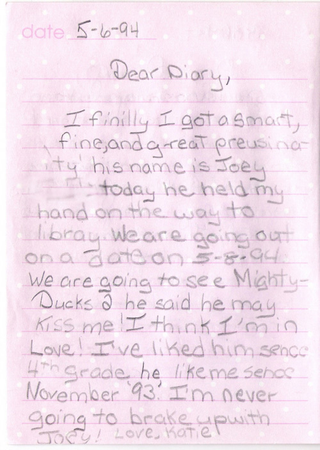 date 5-6-94
Dear Diary,
I finilly I got a smart,
fine, and great preusina-
ity his name is Joey
today he held my
hand on the way to
libray. We are going out
on a date on 5-8-94.
We are going to see Mighty-
Ducks 2 he said he may
Kiss me! I think I'm in
Love! I've liked him sence
4th grade, he like me sence
November '93. I'm never
going to brake up with
Joey! Love, Katie